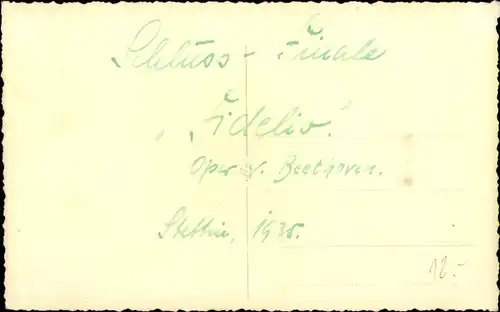 Schluss-Finale
„Fidelio“
Oper v. Beethoven.
Stettin, 1935.
12.-